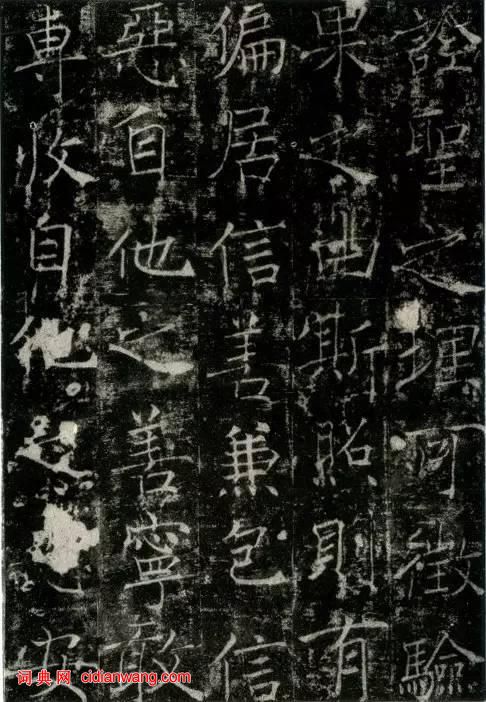 詮聖之理可徵驗
果之斯昭則有
偏居信善兼包信
惡自他之善寧敢
専收自他安
词典网 cidianwang.com